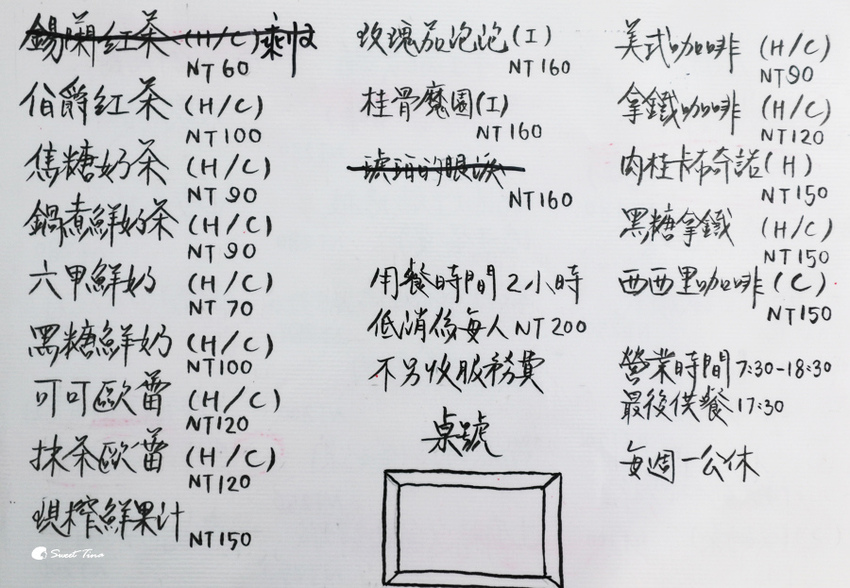 錫蘭紅茶 (H/C)
NT60
伯爵紅茶 (H/C)
NT100
焦糖奶茶 (H/C)
NT90
鍋煮鮮奶茶 (H/C)
NT90
六甲鮮奶 (H/C)
NT70
黑糖鮮奶 (H/C)
NT100
可可歐蕾 (H/C)
NT120
抹茶歐蕾 (H/C)
NT120
現榨鮮果汁
NT150
玫瑰茄泡泡(I)
NT160
桂骨魔園(I)
NT160
琥珀的眼淚
NT160
用餐時間2小時
低消係每人NT200
不另收服務費
桌號
美式咖啡 (H/C)
NT90
拿鐵咖啡 (H/C)
NT120
肉桂卡布奇諾(H)
NT150
黑糖拿鐵 (H/C)
NT150
西西里咖啡(C)
NT150
營業時間7:30-18:30
最後供餐17:30
每週一公休
Sweet Tina